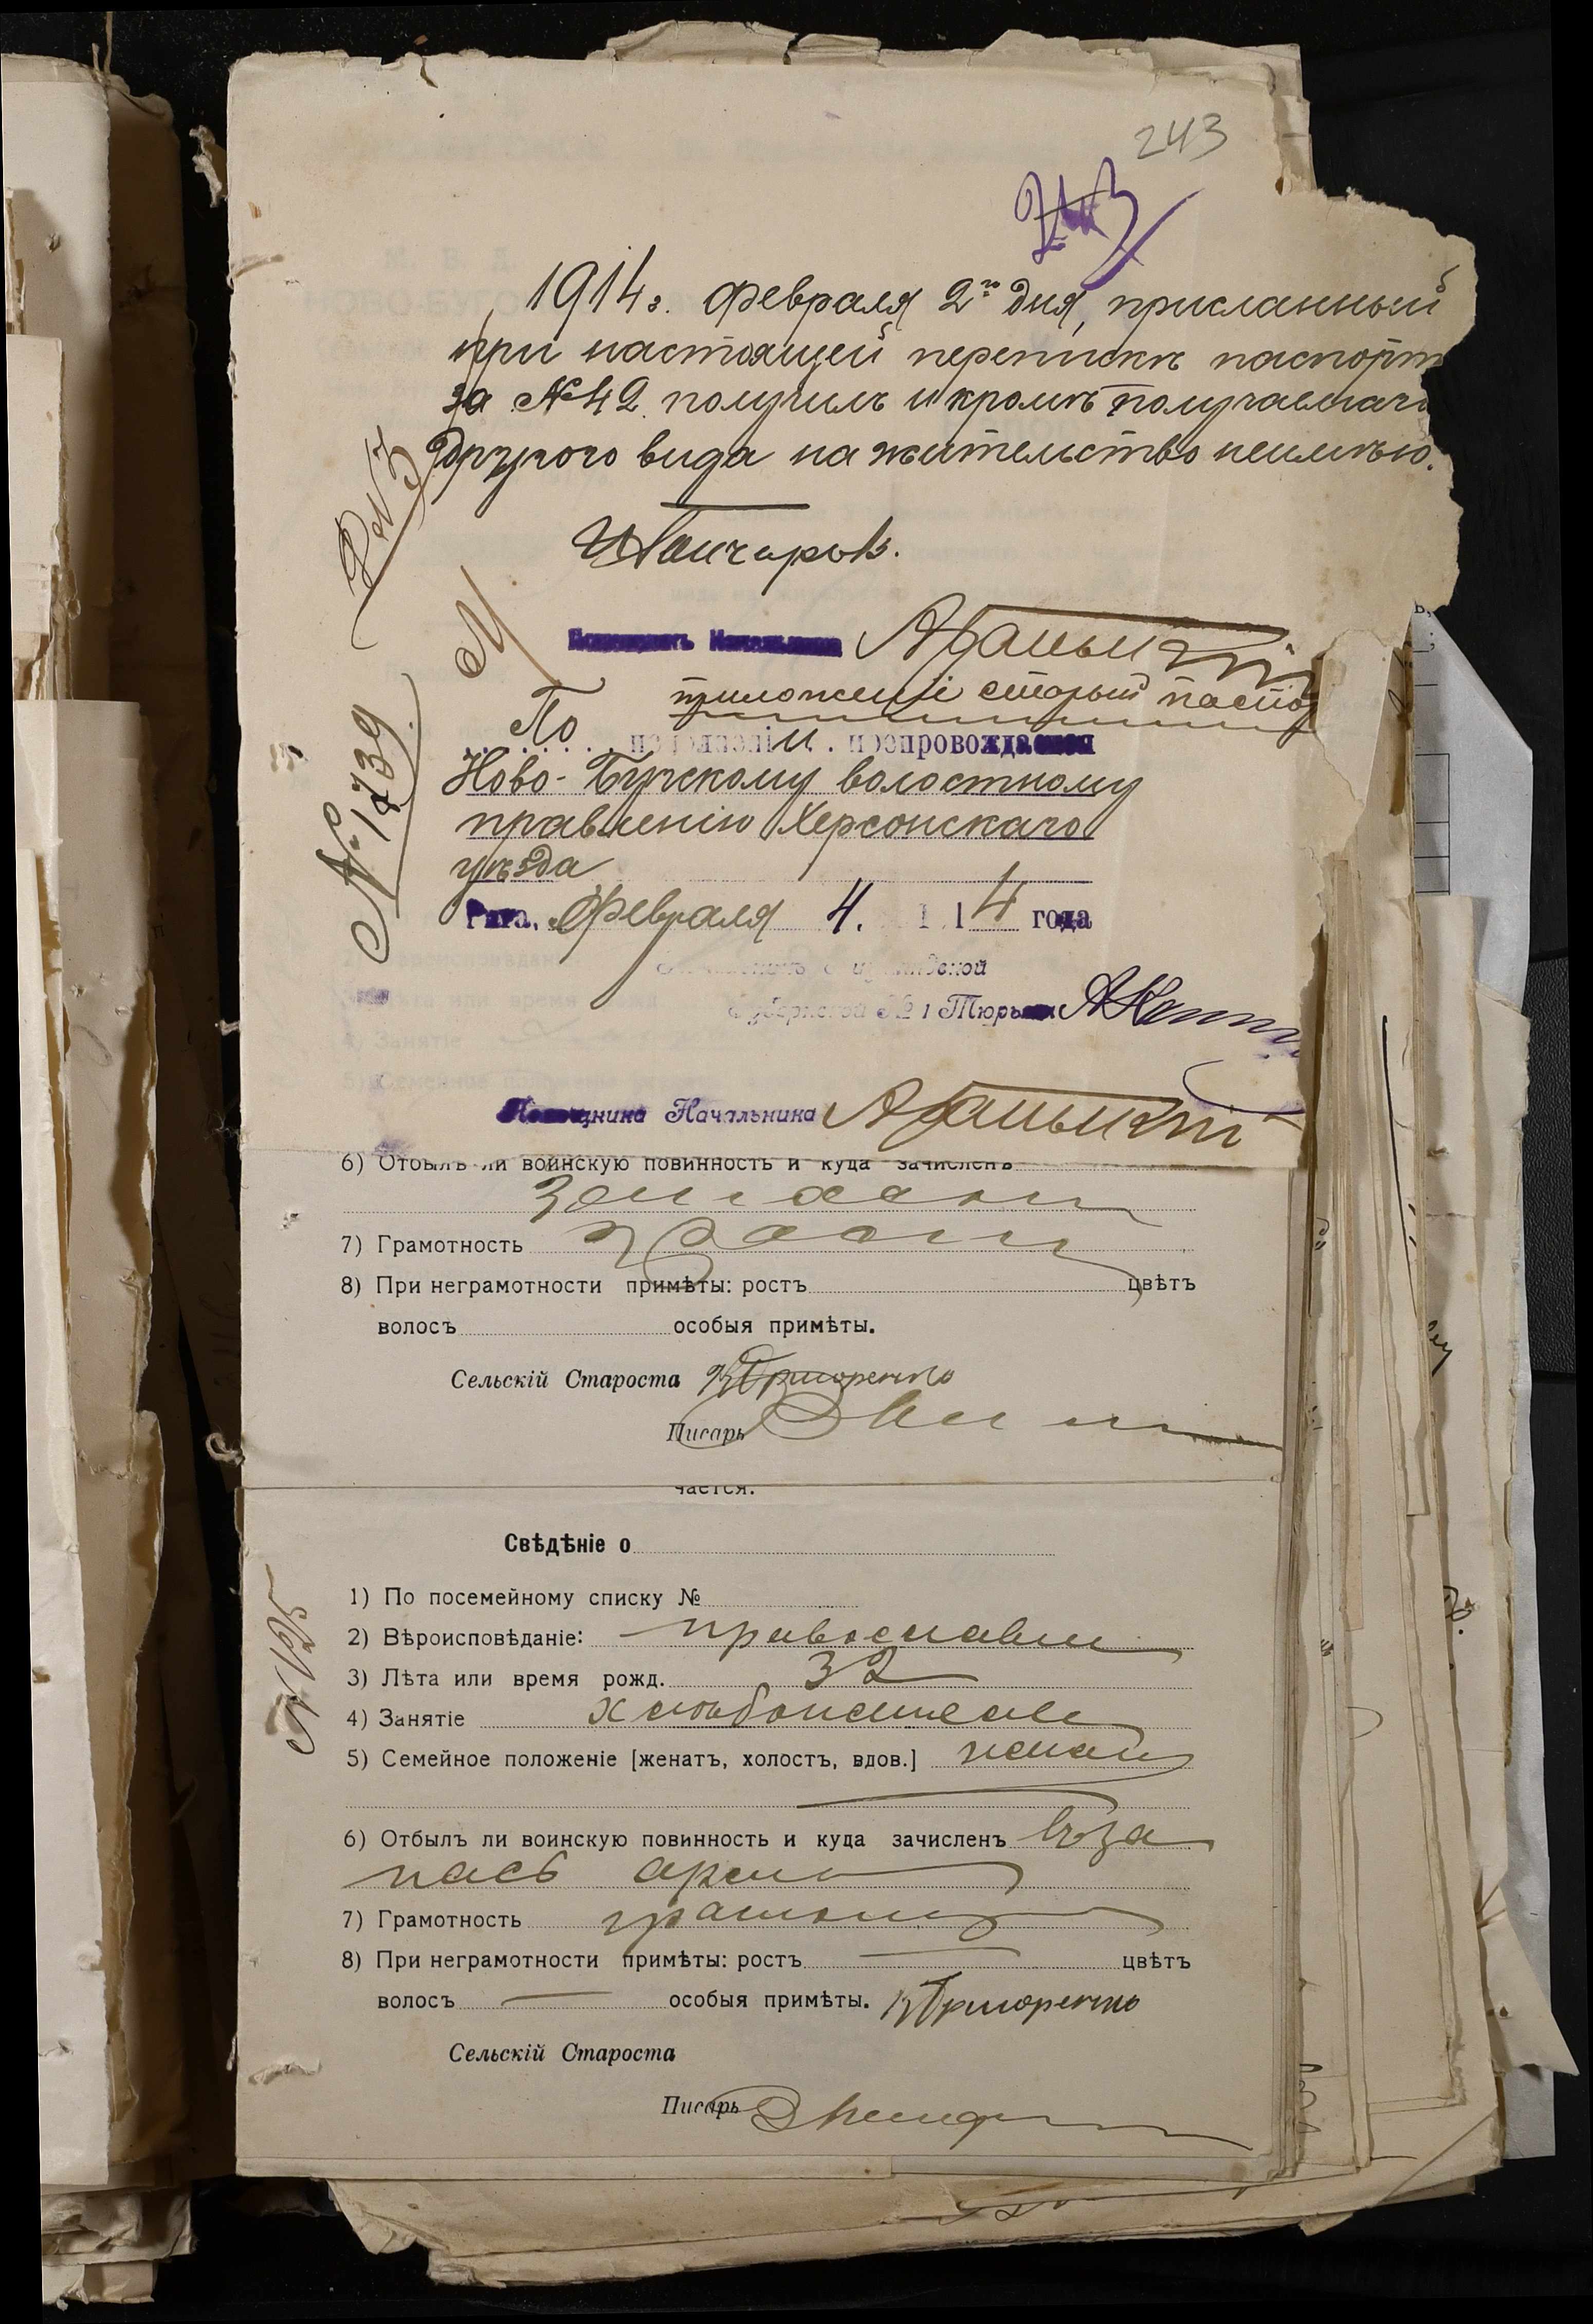 243
243
1914 г. Февраля 2го дня, присланный
при настоящей перепискѣ паспорт
за № 42 получилъ и кромѣ получаемаго
другого вида на жительство неимѣю.
Помощникъ Начальника
приложеніе старый паспор
По исполненіи препровождается
Ново-Бугскому волостному
правленію Херсонскаго
уѣзда
Рига. Февраля 4. 1914 года
Губернской № 1 Тюрьмы
Помощника Начальника
№ 1739
6) Отбылъ ли воинскую повинность и куда зачисленъ
7) Грамотность
8) При неграмотности примѣты: ростъ цвѣтъ
волосъ особыя примѣты.
Сельскій Староста К Григоренко
Писарь
чается.
Свѣдѣніе о
1) По посемейному списку №
2) Вѣроисповѣданіе: православн
3) Лѣта или время рожд. 32
4) Занятіе хлѣбопашест
5) Семейное положеніе [женатъ, холостъ, вдов.] женат
6) Отбылъ ли воинскую повинность и куда зачисленъ въ за
пасъ арми
7) Грамотность грамотн
8) При неграмотности примѣты: ростъ — цвѣтъ
волосъ — особыя примѣты. К Григоренко
Сельскій Староста
Писарь